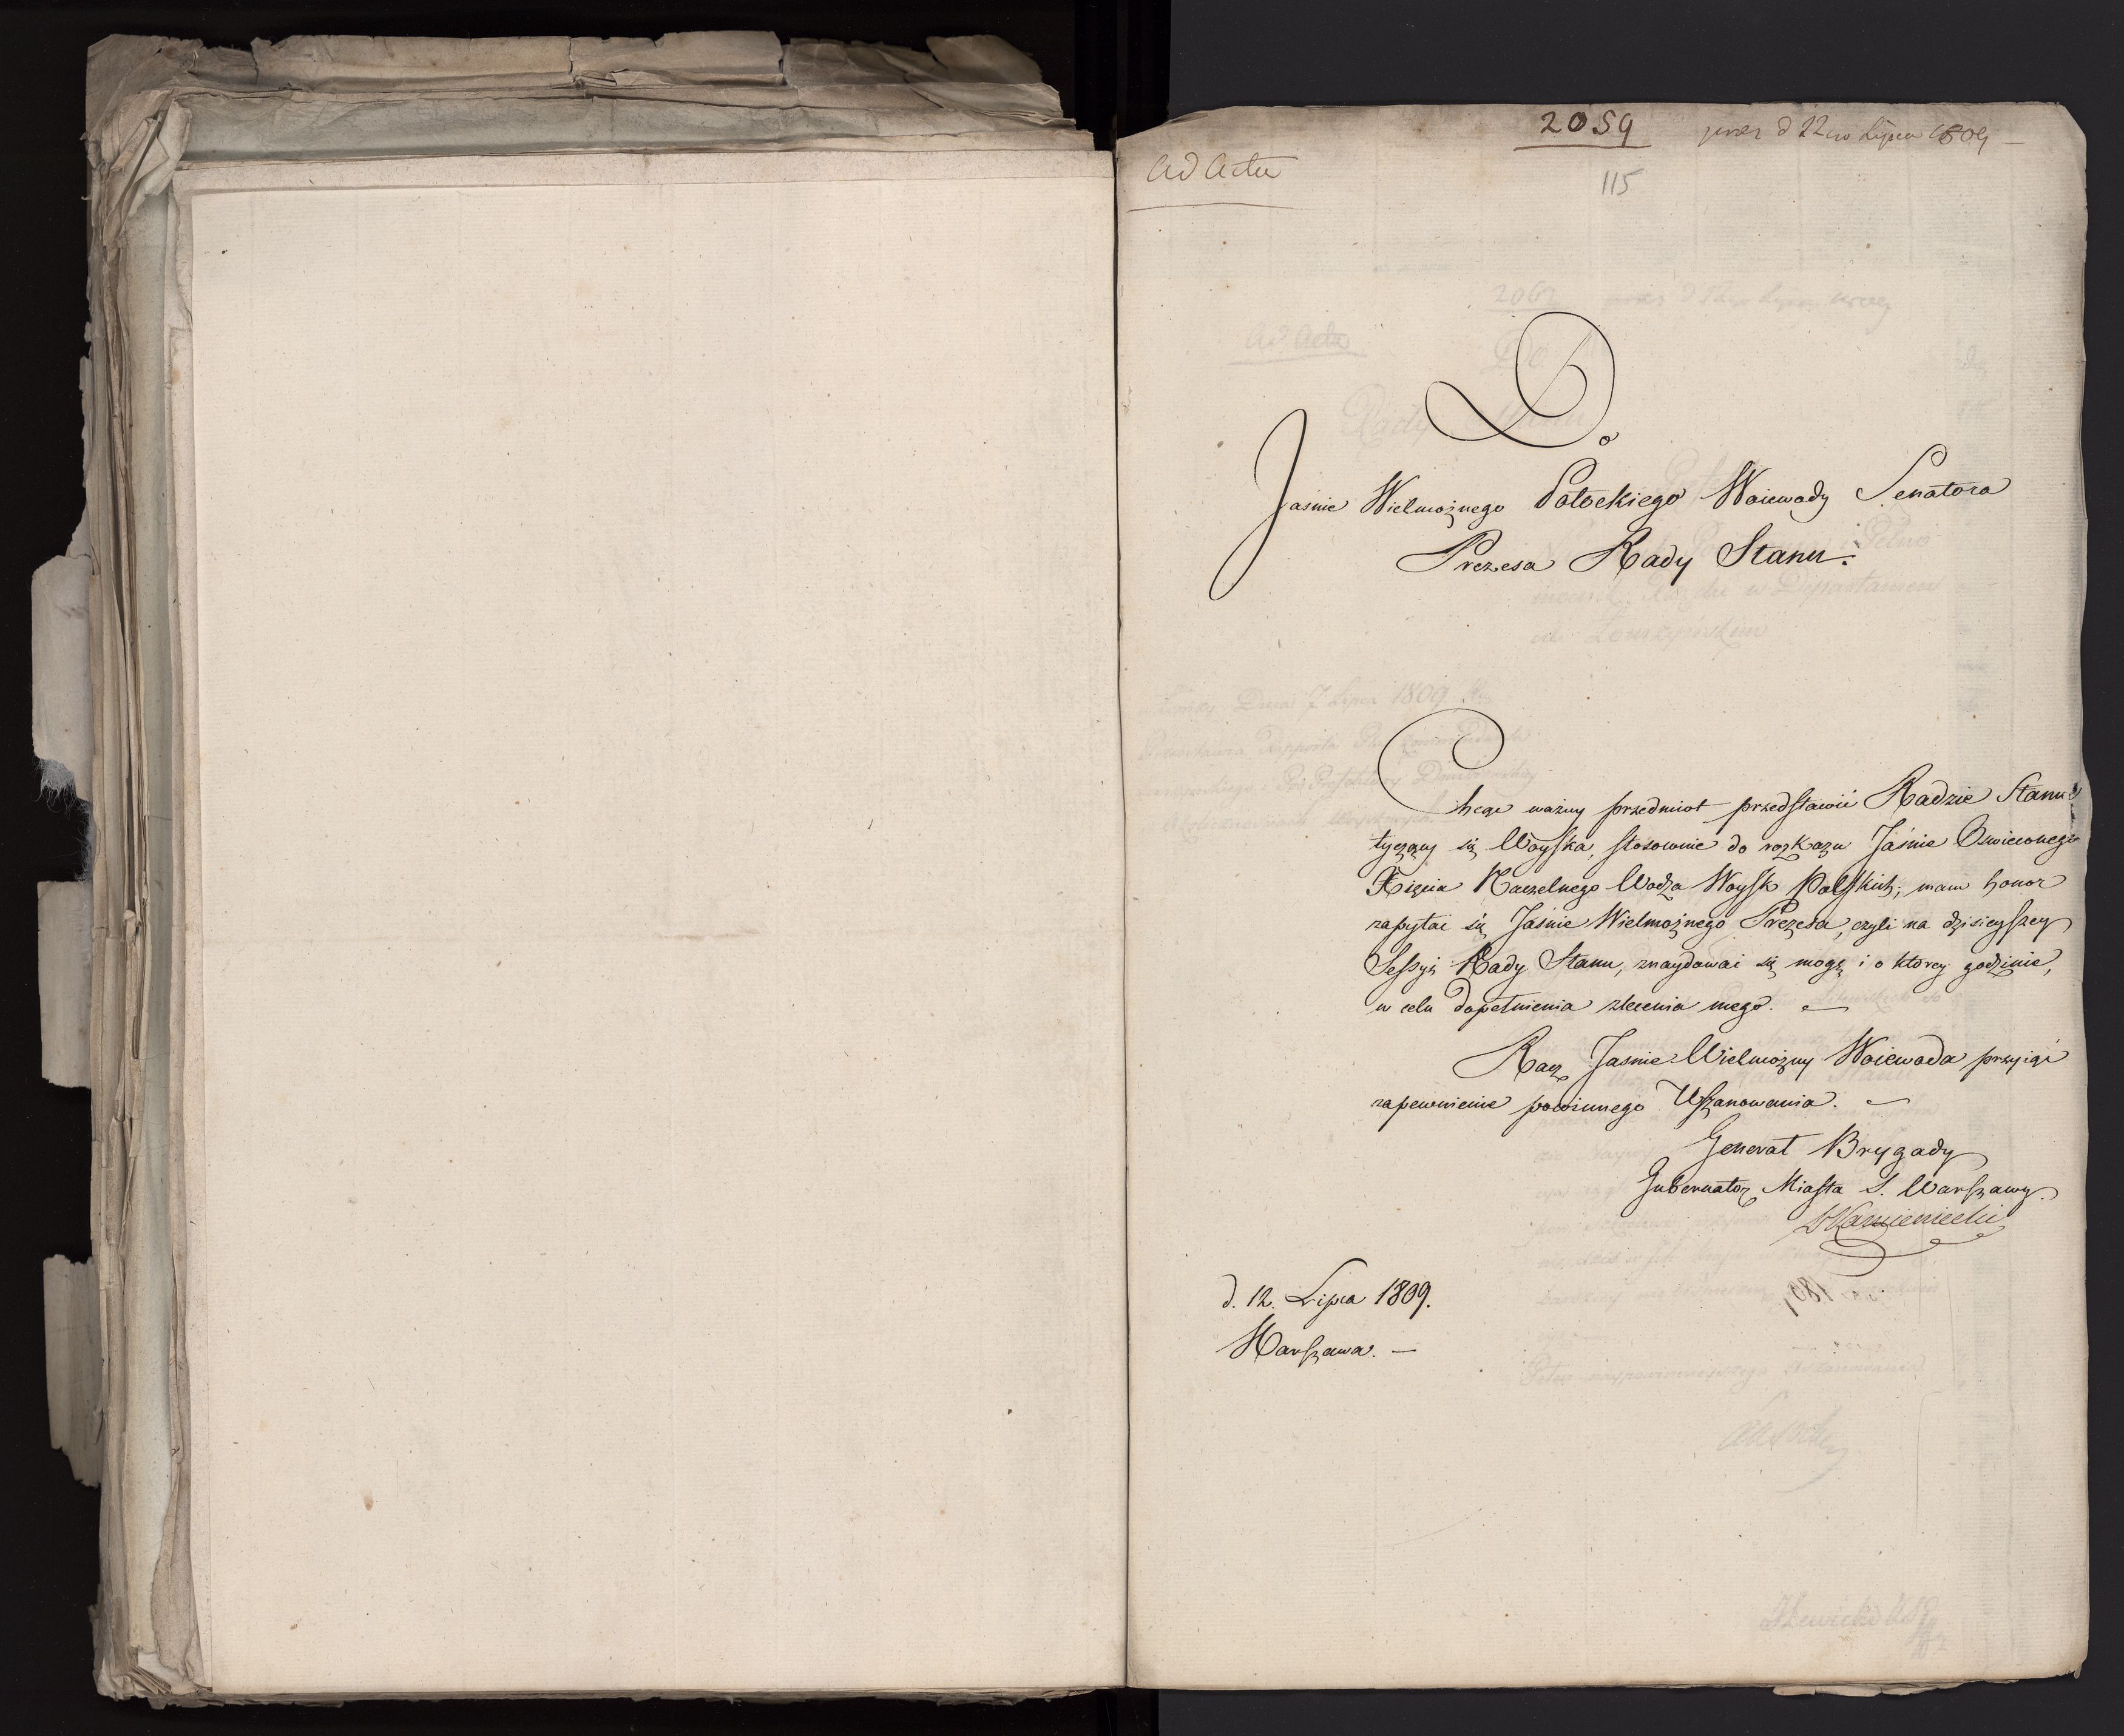 2059 prez d 12go Lipca 1809
Ad Acta
115
Do
Jasnie Wielmożnego Potockiego Woiewody Senatora
Prezesa Rady Stanu.
Chcąc ważny przedmiot przedstawić Radzie Stanu
tyczący się Woyska, stosownie do rozkazu Jaśnie Oswieconego
Xięcia Naczelnego Wodza Woysk Polskich; mam honor
zapytać się Jaśnie Wielmożnego Prezesa, czyli na dzisieyszey
Sessyi Rady Stanu, znaydować się mogę i o którey godzinie,
w celu dopełnienia zlecenia mego.
Racz Jasnie Wielmożny Woiewoda przyiąć
zapewnienie powinnego Uszanowania.
Generał Brygady
Gubernator Miasta S. Warszawy.
Kamieniecki
d. 12. Lipca 1809.
Warszawa. —